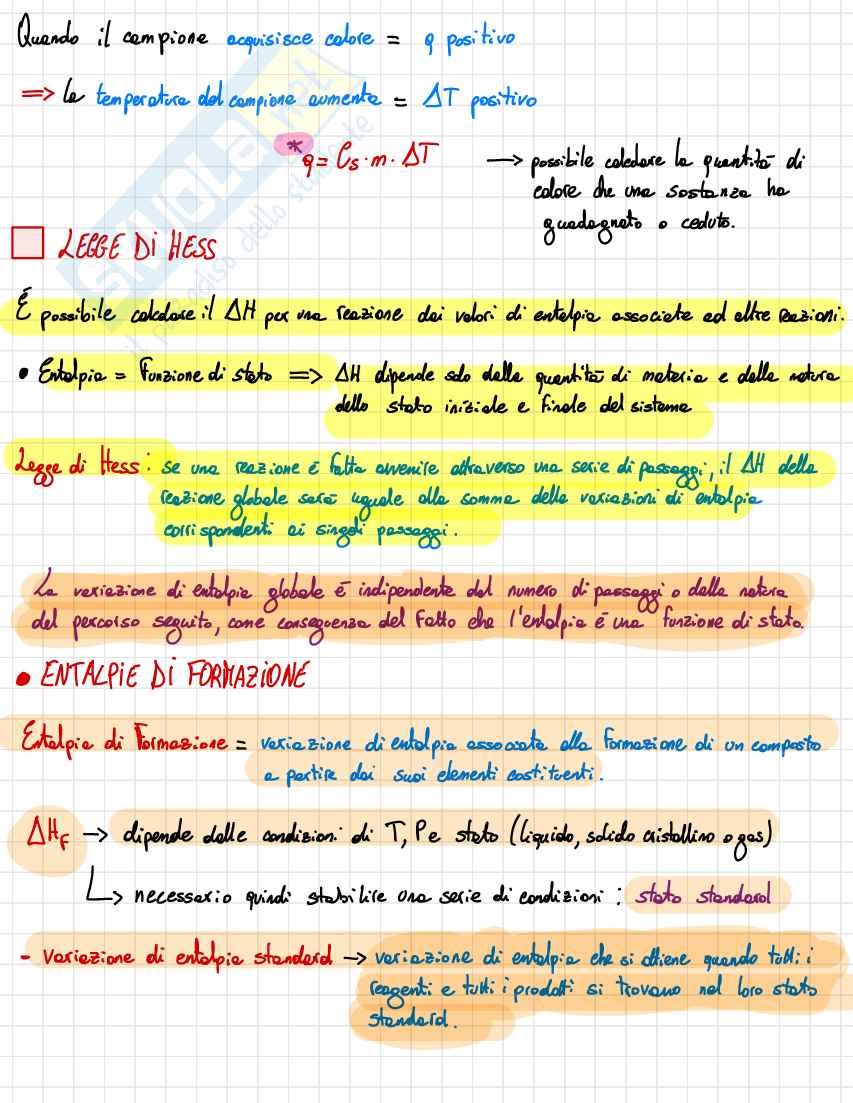 Quando il campione acquisisce calore = q positivo
=> la temperatura del campione aumenta = ΔT positivo
* q = Cs · m · ΔT → possibile calcolare la quantità di
calore che una sostanza ha
guadagnato o ceduto.
LEGGE DI HESS
É possibile calcolare il ΔH per una reazione dai valori di entalpia associate ad altre reazioni.
• Entalpia = Funzione di stato => ΔH dipende solo dalla quantità di materia e dalla natura
dello stato iniziale e finale del sistema
Legge di Hess: se una reazione é fatta avvenire attraverso una serie di passaggi, il ΔH della
reazione globale sará uguale alla somma delle variazioni di entalpia
corrispondenti ai singoli passaggi.
La variazione di entalpia globale é indipendente dal numero di passaggi o dalla natura
del percorso seguito, come conseguenza del fatto che l'entalpia é una funzione di stato.
• ENTALPIE DI FORMAZIONE
Entalpia di Formazione = variazione di entalpia associata alla formazione di un composto
a partire dai suoi elementi costituenti.
ΔHF → dipende dalle condizioni di T, P e stato (liquido, solido cristallino o gas)
↳ necessario quindi stabilire una serie di condizioni: stato standard
- variazione di entalpia standard → variazione di entalpia che si ottiene quando tutti i
reagenti e tutti i prodotti si trovano nel loro stato
standard.
SKUOLA.net
il paradiso dello studente